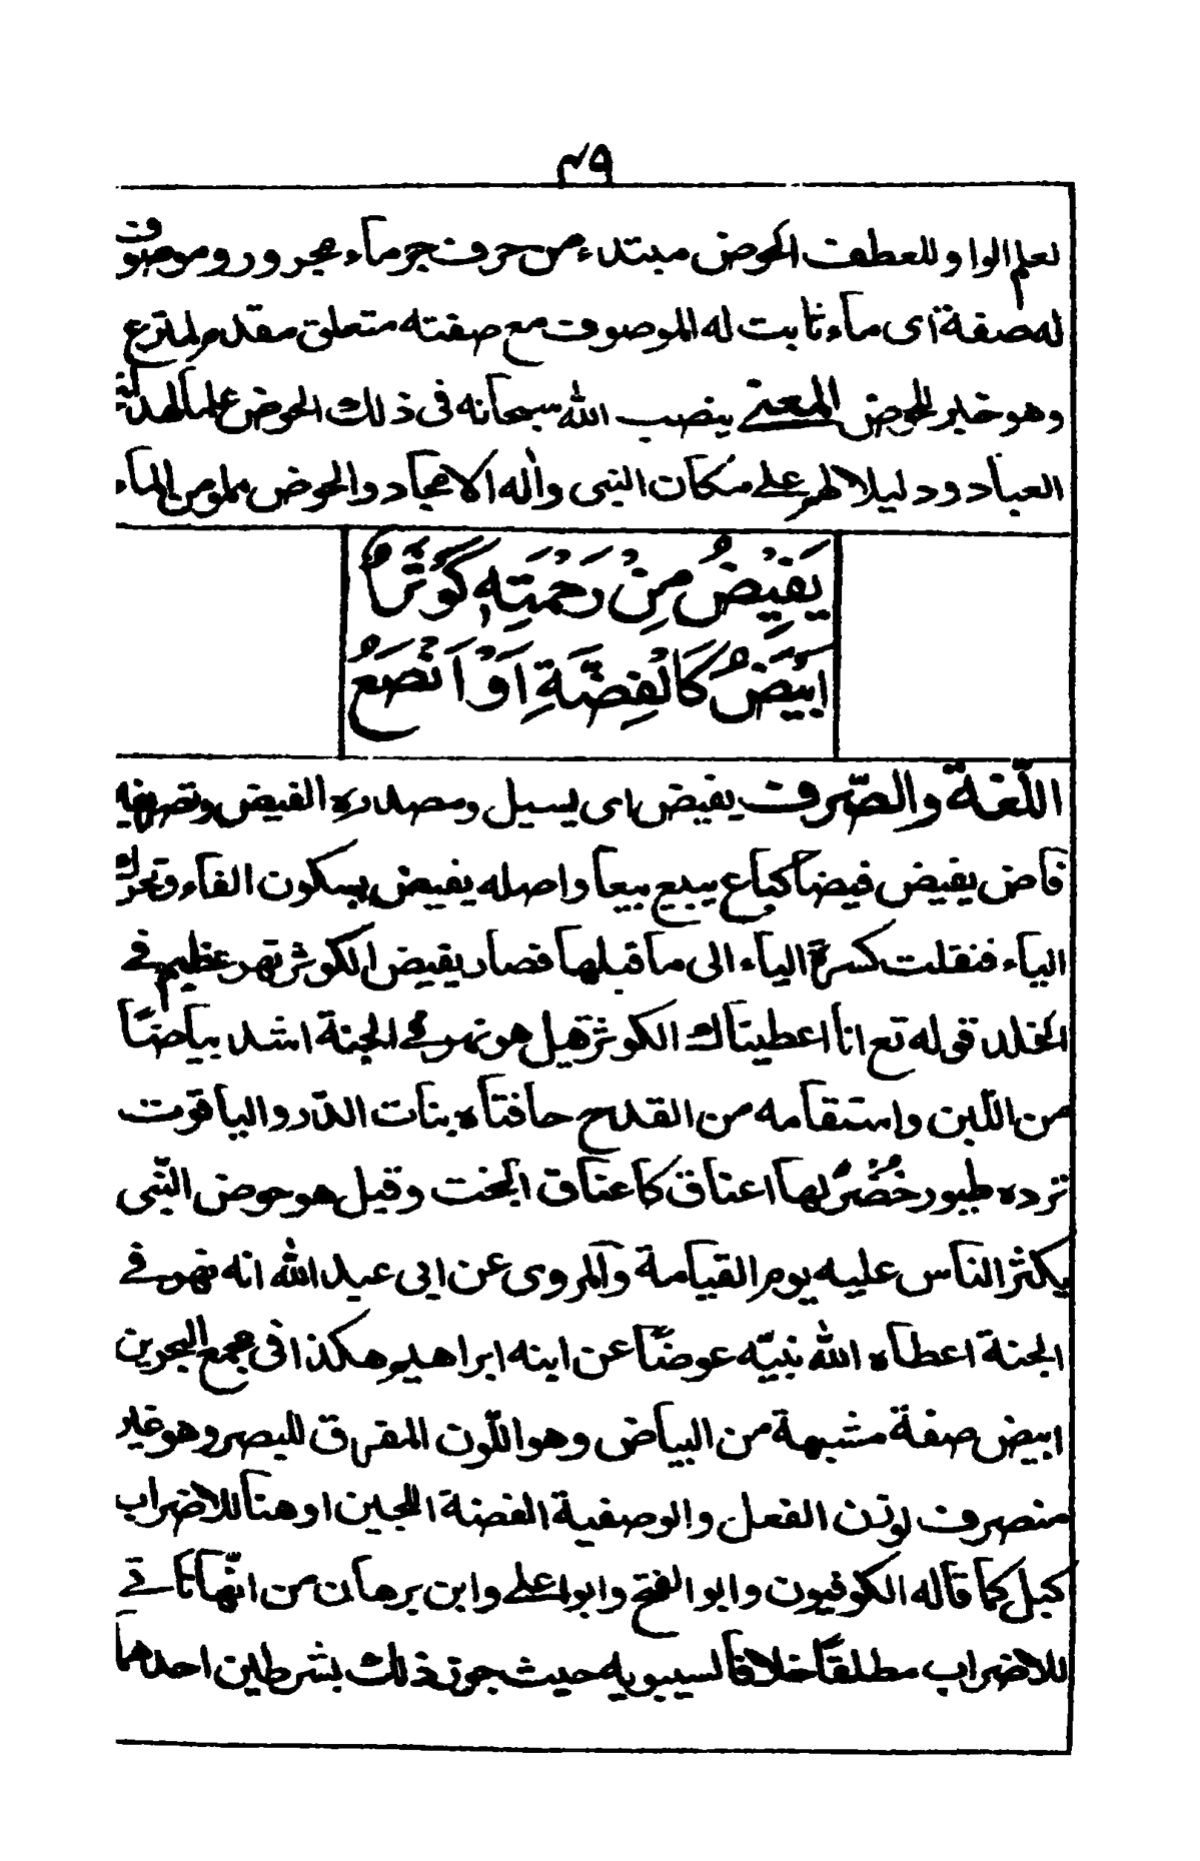 ٤٩
لعلم الواو للعطف الحوض مبتدء من حرف جر ماء مجرور وموصوف
له صفة اى ماء ثابت له الموصوف مع صفته متعلق مقدم لمترع
وهو خبر للحوض المعنے ينصب الله سبحانه فى ذلك الحوض علما لهداية
العباد ودليلا لهم علے مكان النبى واٰله الامجاد والحوض مملو من الماء
يَفِيْضُ مِنْ رَحْمَتِهٖ كَوْثَرٌ
اَبْيَضُ كَالْفِضَّةِ اَوْ اَنْصَعُ
اللّغة والصّرف يفيض اى يسيل ومصدره الفيض وتصريفه
فاض يفيض فيضا كباع يبيع بيعا واصله يفيض بسكون الفاء وتحرك
الياء فنقلت كسرة الياء الى ما قبلها فصار يفيض الكوثر نهر عظيم فے
الخلد قوله تع انا اعطيناك الكوثر قيل هو نهر فے الجنة اشد بياضًا
من اللّبن واستقامه من القدح حافتاه بنات الدّر والياقوت
ترده طيور خُضْرٌ لها اعناق كاعناق البخت وقيل هو حوض النّبى
يكثر الناس عليه يوم القيامة والمروى عن ابى عبد الله انه نهر فے
الجنة اعطاه الله نبيّه عوضًا عن ابنه ابراهيم هكذا فى مجمع البحرين
ابيض صفة مشبهة من البياض وهو اللّون المفرق للبصر وهو غير
منصرف لوزن الفعل والوصفية الفضة اللجين او هنا للاضراب
كبل كما قاله الكوفيون وابو الفتح وابو علے وابن برهان من انّها تاتے
للاضراب مطلقًا خلافا لسيبويه حيث جوز ذلك بشرطين احدهما